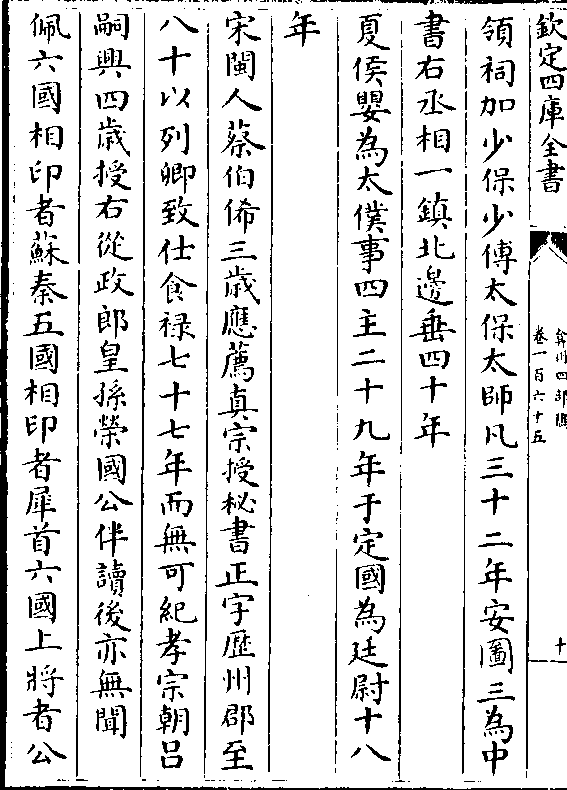 欽定四庫全書
弇州四部稿
卷一百六十五
十
領祠加少保少傅太保太師凡三十二年安圖三為中
書右丞相一鎮北邊垂四十年
夏侯嬰為太僕事四主二十九年于定國為廷尉十八
年
宋閩人蔡伯俙三歲應薦真宗授秘書正字歷州郡至
八十以列卿致仕食祿七十七年而無可紀孝宗朝呂
嗣興四歲授右從政郎皇孫榮國公伴讀後亦無聞
佩六國相印者蘇秦五國相印者犀首六國上將者公